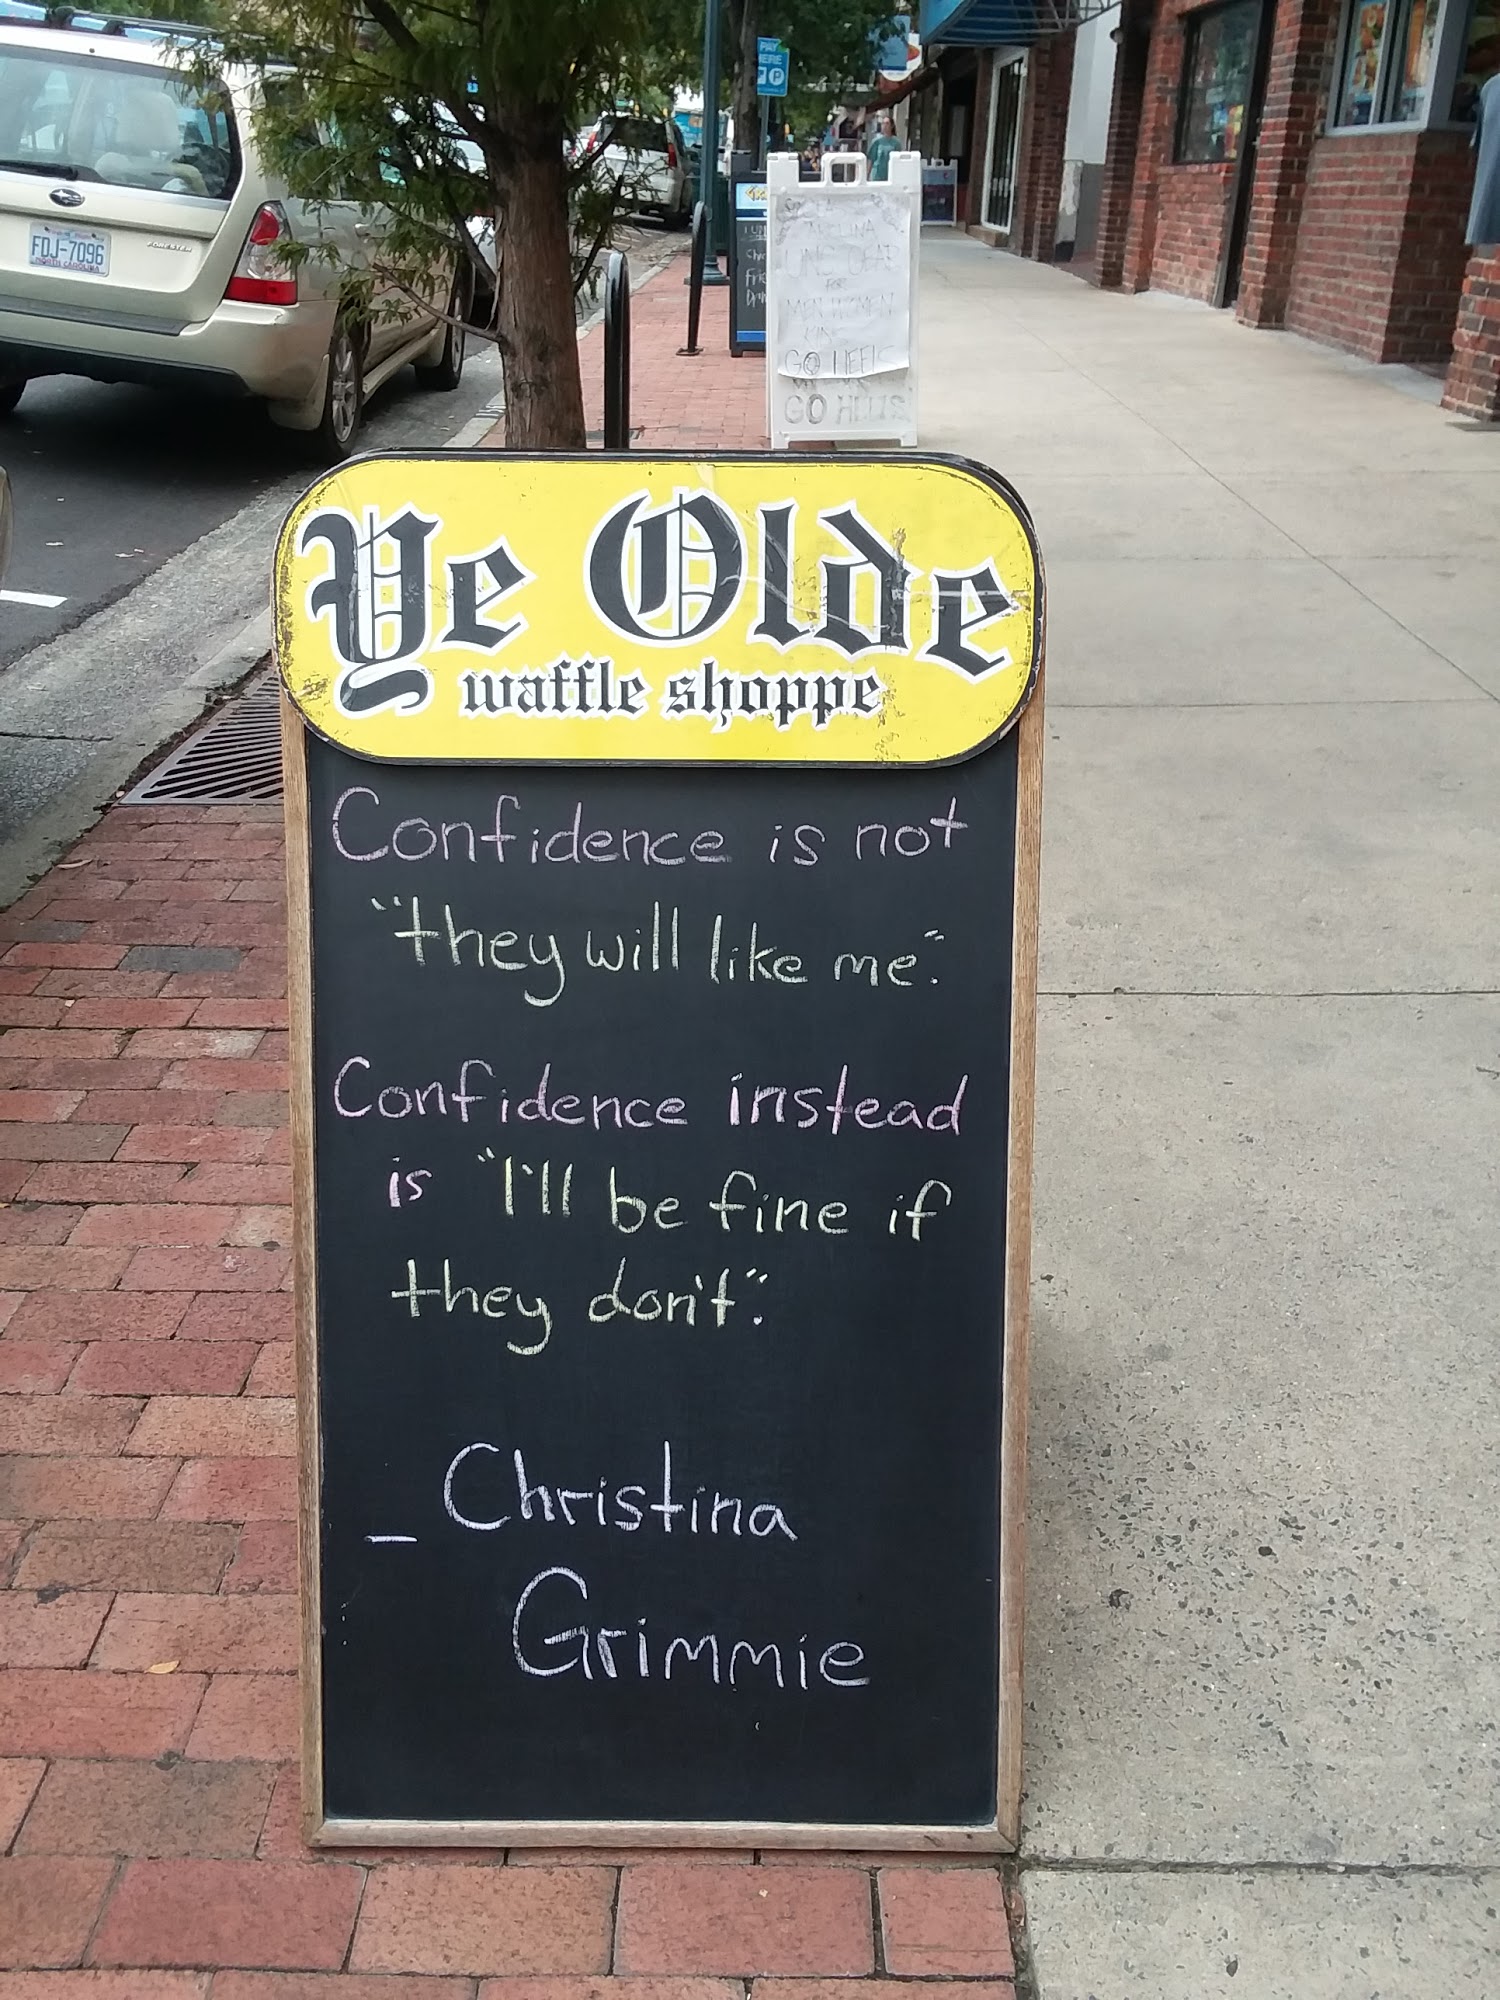 FDJ-7096
NORTH CAROLINA
FORESTER
PAY
HERE
P
CAROLINA
FOR
MEN WOMEN
GO HEELS
GO HEELS
Ye Olde
waffle shoppe
Confidence is not
"they will like me".
Confidence instead
is "I'll be fine if
they don't".
_ Christina
Grimmie